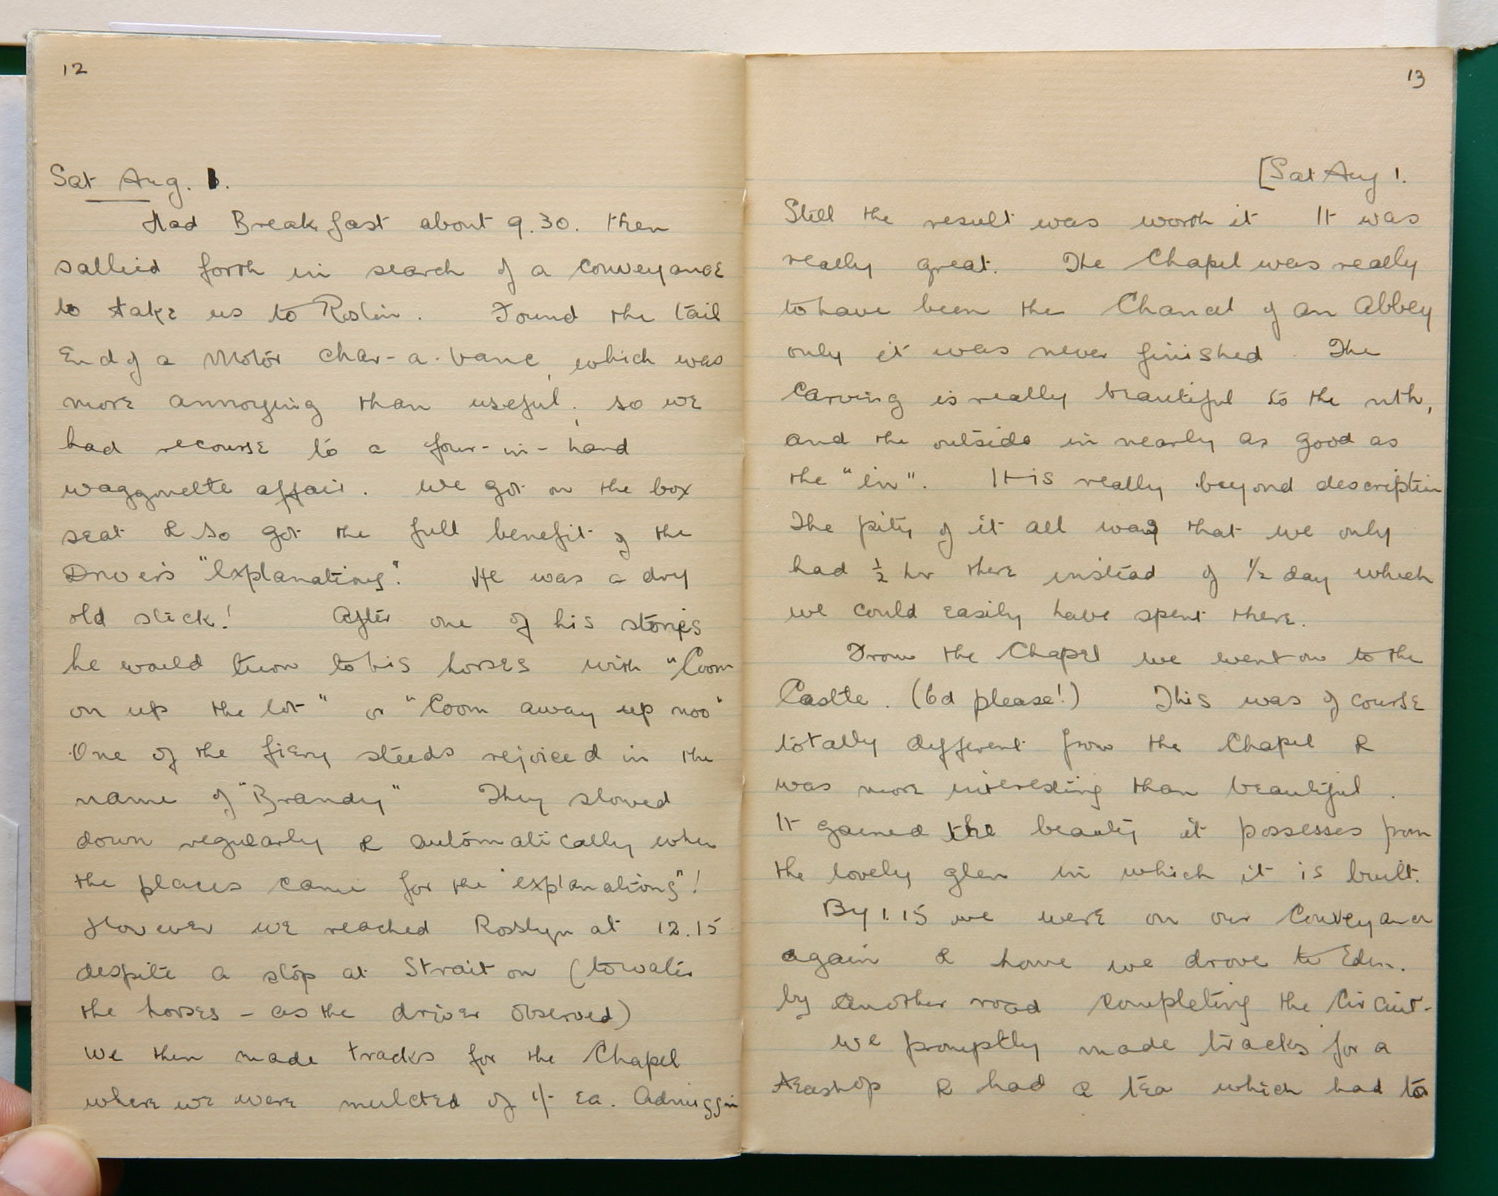 12
Sat Aug. 1.
Had Breakfast about 9.30. then
sallied forth in search of a conveyance
to take us to Roslin. Found the tail
End of a Motor char-a-banc, which was
more annoying than useful, so we
had recourse to a four-in-hand
waggonette affair. We got on the box
seat & so got the full benefit of the
Driver's "explanations". He was a dry
old stick! After one of his stories
he would turn to his horses with "Coom
on up the lot" or "Coom away up noo"
One of the fiery steeds rejoiced in the
name of "Brandy" They slowed
down regularly & automatically when
the places came for the "explanations"!
However we reached Rosslyn at 12.15
despite a stop at Straiton (to water
the horses - as the driver observed)
We then made tracks for the Chapel
where we were mulcted of 1/- Ea. Admission
13
[Sat Aug 1.
Still the result was worth it It was
really great. The Chapel was really
to have been the Chancel of an Abbey
only it was never finished. The
carving is really beautiful to the nth,
and the outside in nearly as good as
the "in". It is really beyond description
The pity of it all was that we only
had ½ hr there instead of ½ day which
we could easily have spent there.
From the Chapel we went on to the
Castle. (6d please!) This was of course
totally different from the Chapel &
was more interesting than beautiful.
It gained the beauty it possesses from
the lovely glen in which it is built.
By 1.15 we were on our Conveyance
again & home we drove to Edin.
by another road completing the Circuit.
We promptly made tracks for a
teashop & had a tea which had to